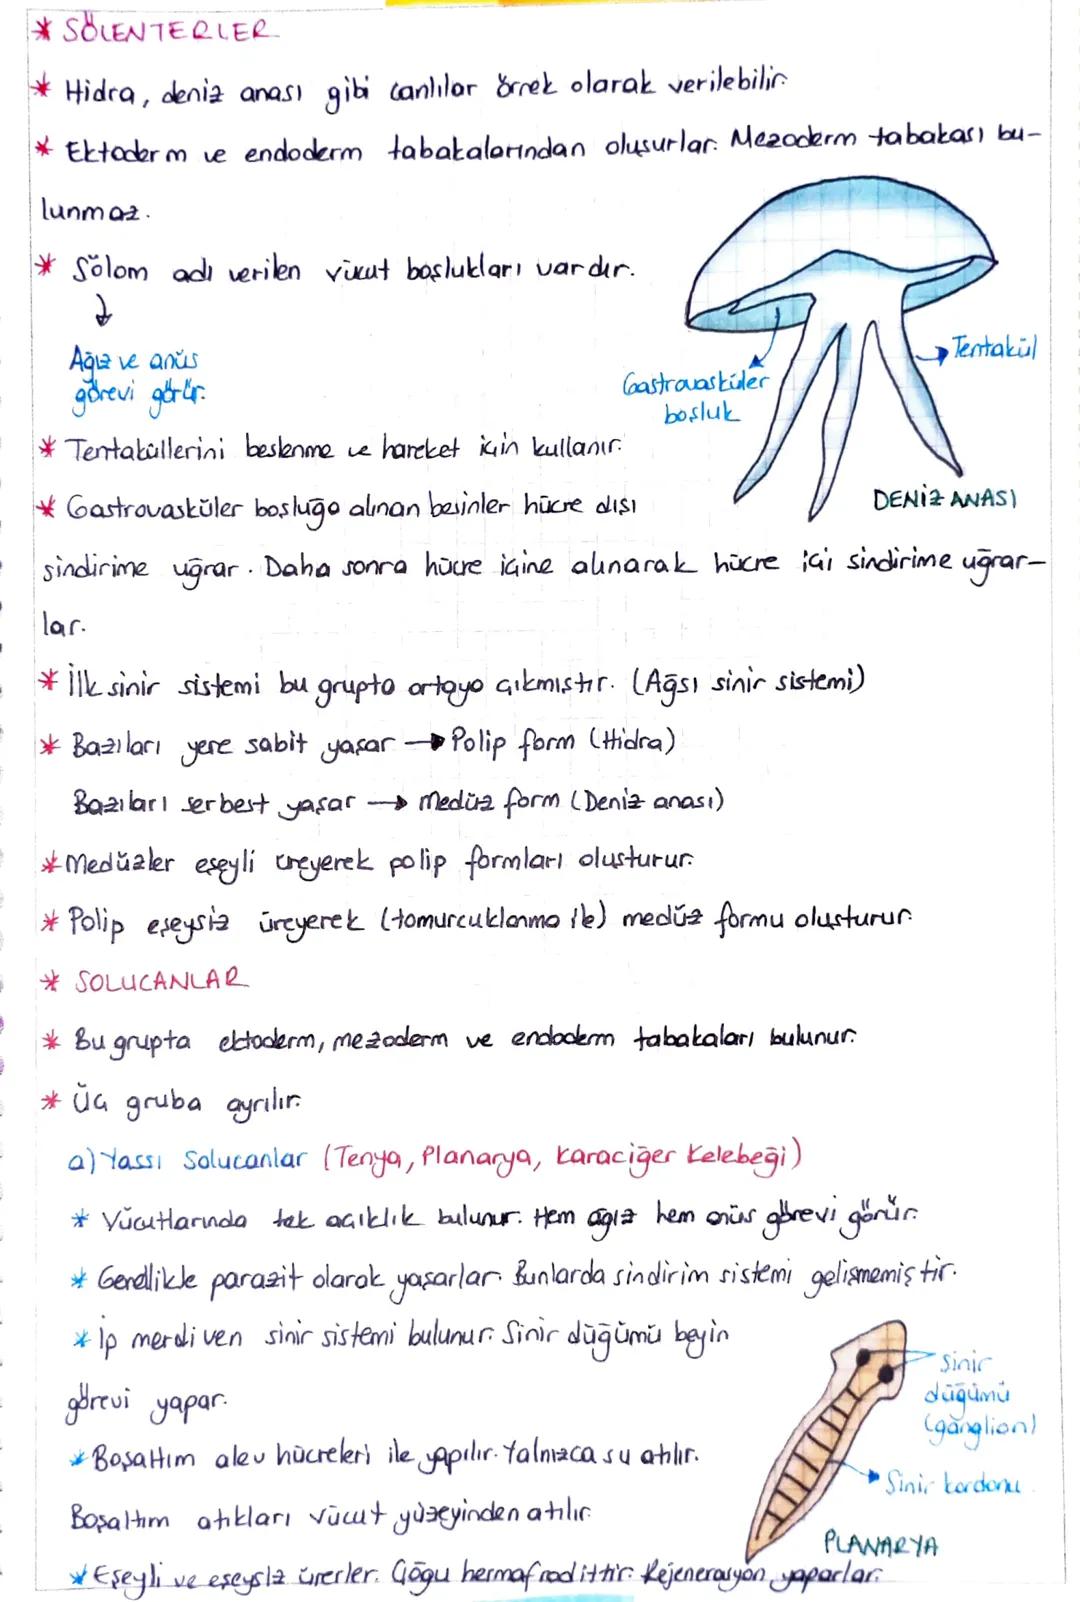 * SÖLENTERLER
* Hidra, deniz anası gibi canlılar örnek olarak verilebilir.
* Ektoderm ve endoderm tabakalarından oluşurlar. Mezoderm tabakası bu-
lunmaz.
* Sölom adı verilen vücut boşlukları vardır.
Ağız ve anüs
görevi görür.
Gastrovasküler
boşluk
Tentakül
DENİZ ANASI
* Tentaküllerini beslenme ve hareket için kullanır.
* Gastrovasküler boşluğa alınan besinler hücre dışı
sindirime uğrar. Daha sonra hücre içine alınarak hücre içi sindirime uğrar-
lar.
* İlk sinir sistemi bu grupta ortaya çıkmıştır. (Ağsı sinir sistemi)
* Bazıları yere sabit yaşar → Polip form (Hidra)
Bazıları serbest yaşar → Medüz form (Deniz anası)
* Medüzler eşeyli üreyerek polip formları oluşturur.
* Polip eşeysiz üreyerek (tomurcuklanma ile) medüz formu oluşturur.
* SOLUCANLAR
* Bu grupta ektoderm, mezoderm ve endoderm tabakaları bulunur.
* Üç gruba ayrılır.
a) Yassı Solucanlar (Tenya, Planarya, Karaciğer Kelebeği)
* Vücutlarında tek açıklık bulunur. Hem ağız hem anüs görevi görür.
* Genellikle parazit olarak yaşarlar. Bunlarda sindirim sistemi gelişmemiştir.
* İp merdiven sinir sistemi bulunur. Sinir düğümü beyin
görevi yapar.
* Boşaltım alev hücreleri ile yapılır. Yalnızca su atılır.
Boşaltım atıkları vücut yüzeyinden atılır.
Sinir
düğümü
(ganglion)
Sinir kordonu
PLANARYA
* Eşeyli ve eşeysiz ürerler. Çoğu hermafrodittir. Rejenerasyon yaparlar.